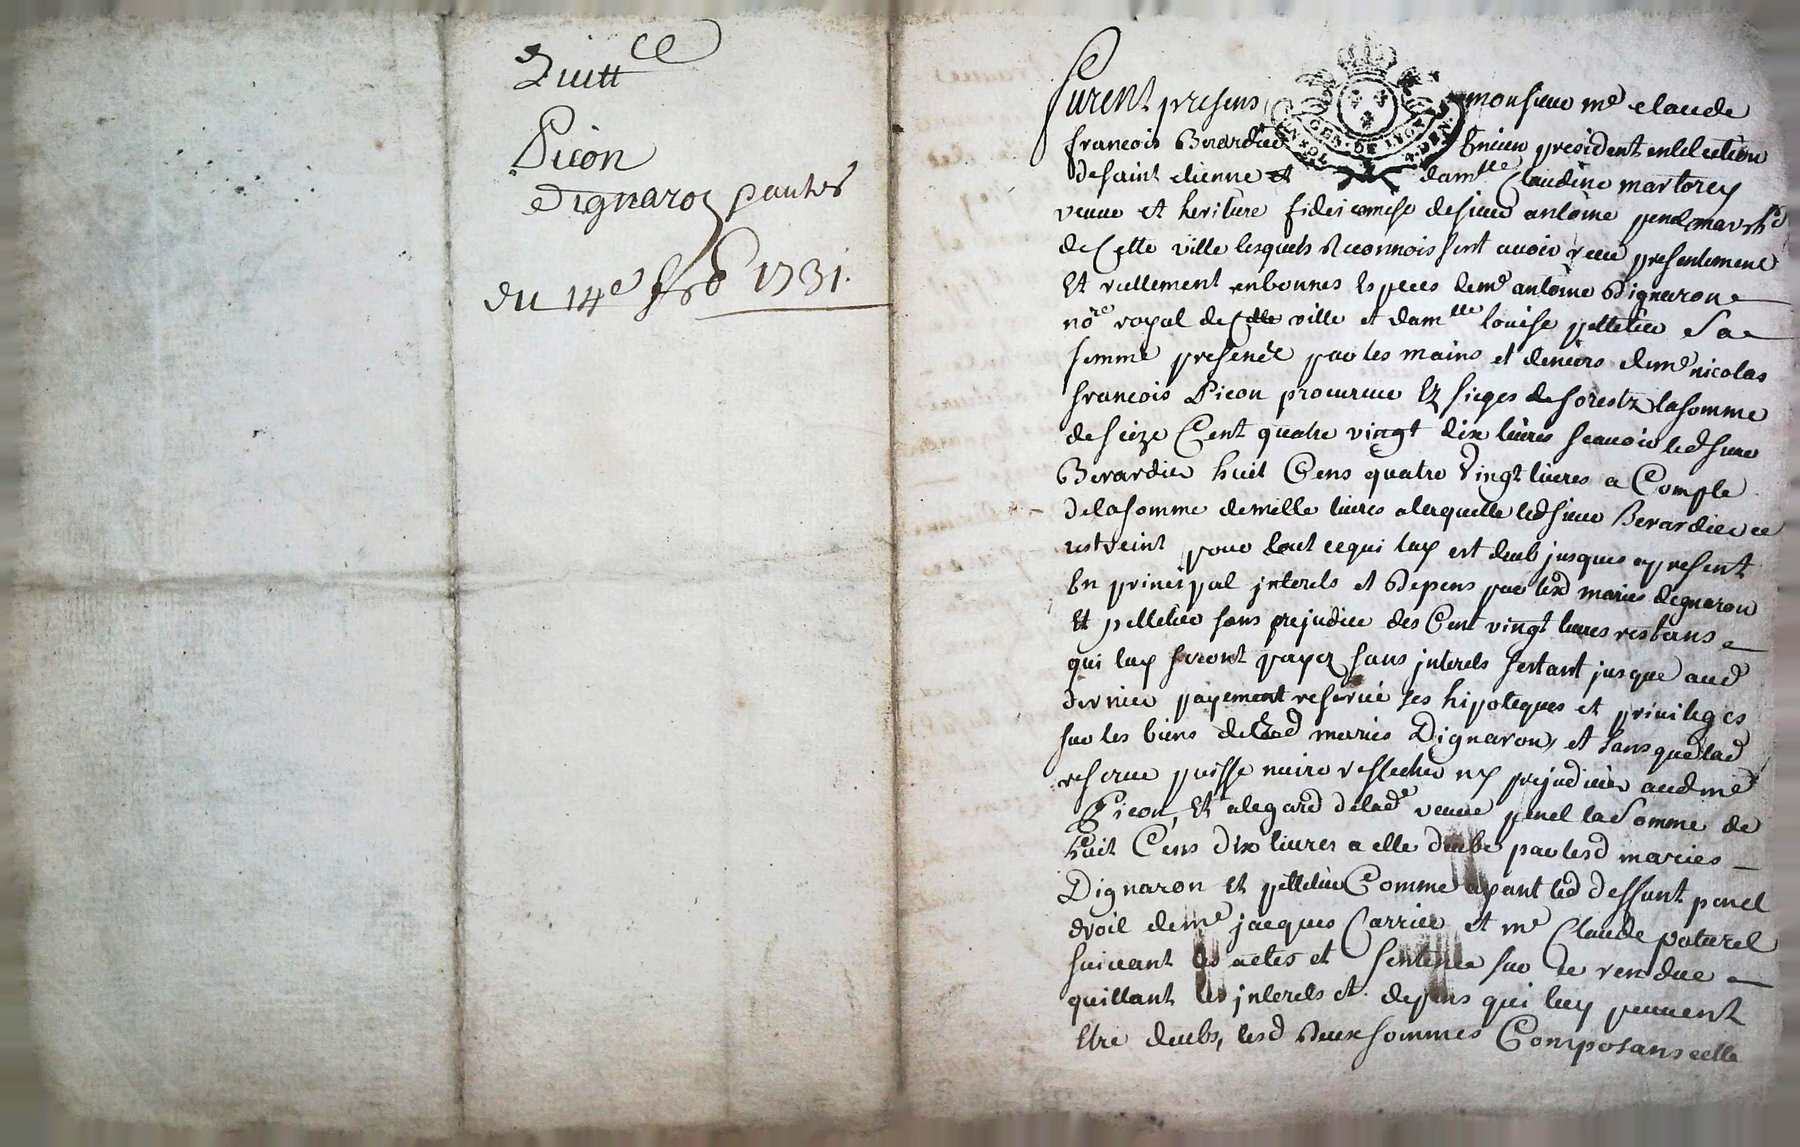 Quitt.ce
Picon
Dignaron & autres
du 14e fro 1731.
Furent presens monsieur me claude
francois Berardier Encien president en lelection
de saint etienne et damlle Claudine martorey
veuve et heritiere fideicomise de sieur antoine penel march.d
de Cette ville lesquels Reconnoissent avoir receu presentement
Et reellement en bonnes Especes de me antoine Dignaron
nore royal de Cette ville et damlle louise pelletier Sa
femme presente par les mains et deniers de me nicolas
francois Picon procureur Ez sieges de forestz la somme
de seize Cent quatre vingt dix livres scavoir led sieur
Berardier huit Cens quatre Vingt livres a Compte
de la somme de mille livres a laquelle led sieur Berardier ce
restreint pour tout ce qui luy est deub jusques a present
En principal jnterets et Depens par lesd mariés dignaron
Et pelletier sans prejudice des Cent vingt livres restans
qui luy seront payez sans jnterets jusque aud
dernier payement reservé ses hipoteques et privileges
sur les biens desd mariés Dignaron, et sans que lad
reserve puisse nuire ny prejudicier aud me
Picon, Et a legard de lade veuve penel la Somme de
huit Cens dix livres a elle deube par lesd mariés
Dignaron Et pelletier Comme ayant led deffunt penel
droit de me jacques Carrier et me Claude paturel
suivant les actes et sentence sur ce rendue
quittant les jnterets et depens qui luy peuvent
Etre deubs, lesd Deux sommes Composans celle
GEN. DE LYON
4. DEN.